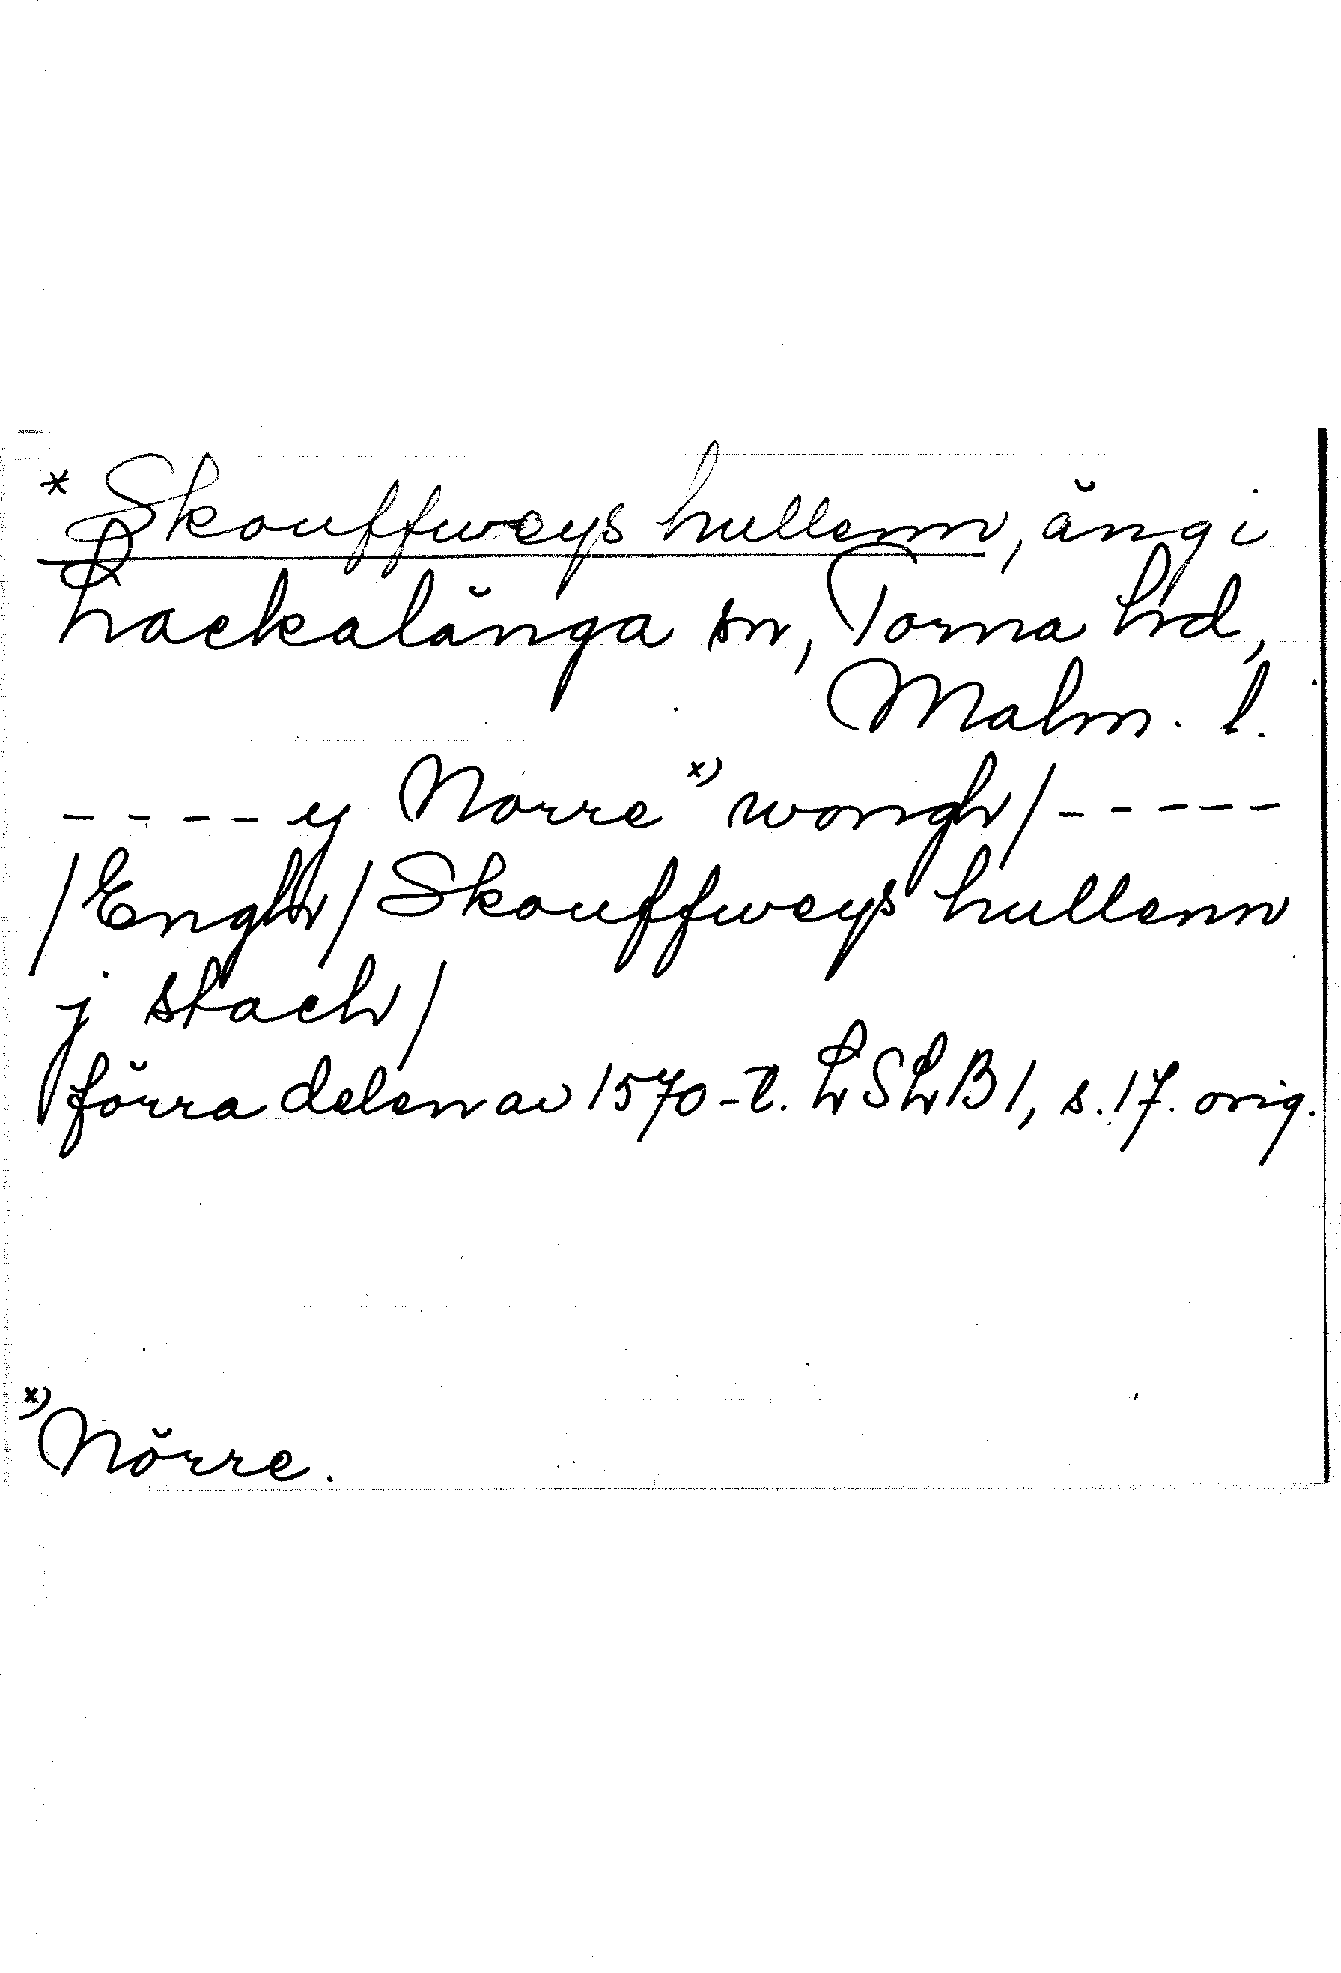 * Skouffweys hullenn, äng i
Hackalänga sn, Torna hd,
Malm. l.
----y Norre x) wongh/-----
/Engh/ Skouffweys hullenn
j stach/
förra delen av 1570-t. LSLB 1, s. 17. orig.
x) Nörre.